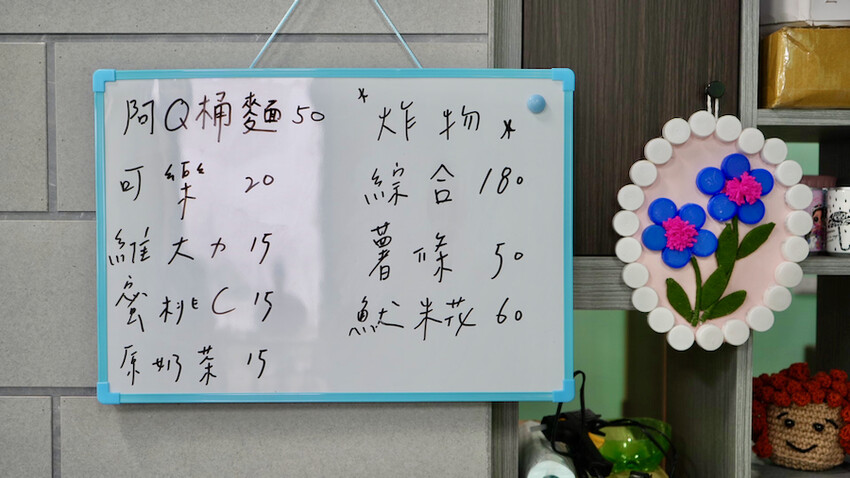 阿Q桶麵 50
可樂 20
維大力 15
蜜桃C 15
原奶茶 15
*炸物*
綜合 180
薯條 50
魷米花 60